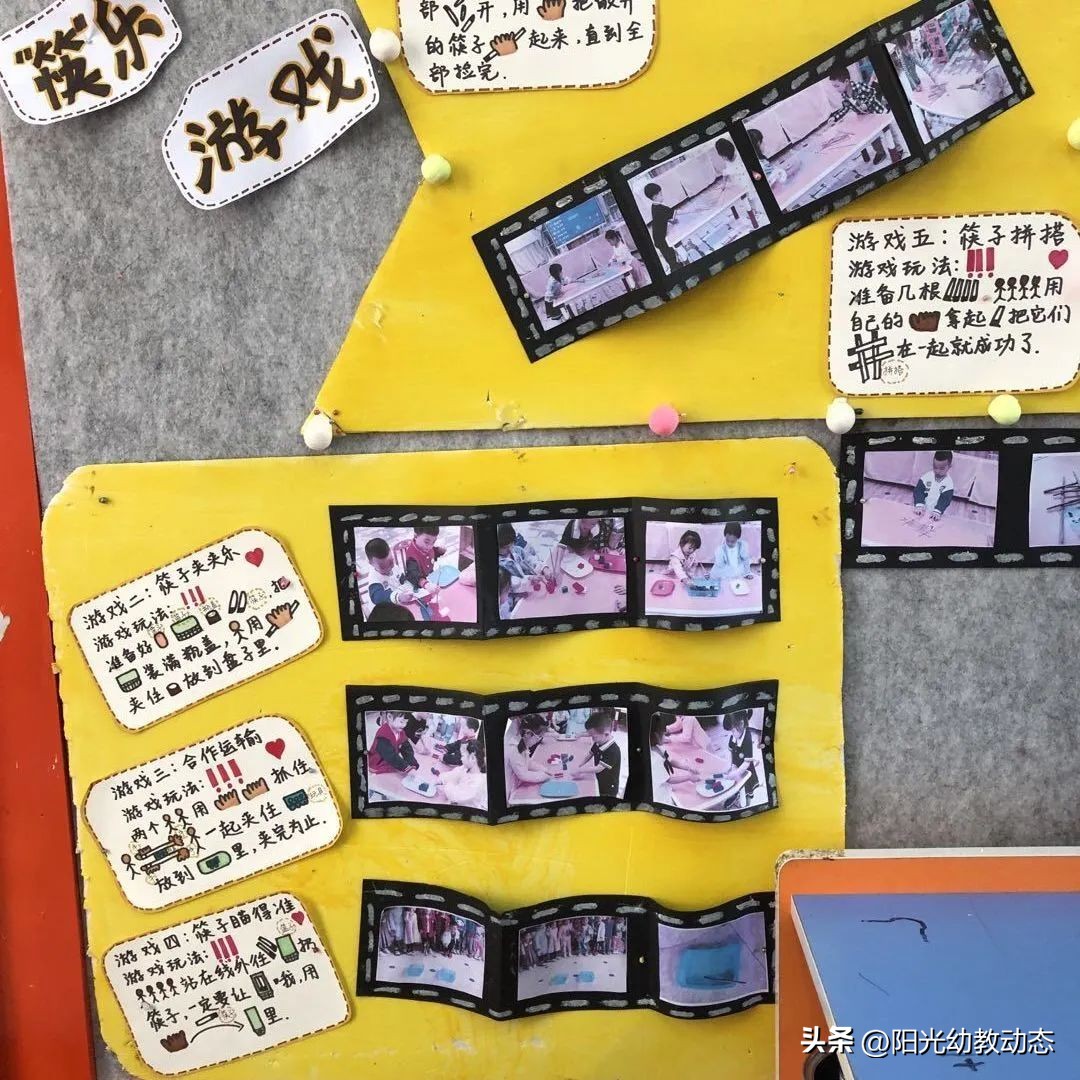 "筷"乐
游戏
部开，用把散开
的筷子起来，直到全
部捡完.
游戏五：筷子拼搭
游戏玩法：!!!
准备几根用
自己的拿起把它们
在一起就成功了.
拼搭
游戏二：筷子夹夹乐
游戏玩法：!!!
准备好把
装满瓶盖，用
夹住放到盘子里.
游戏三：合作运输
游戏玩法：!!!
两个用抓住
一起夹住玩具
放到里，夹完为止.
游戏四：筷子瞄得准
游戏玩法：!!!
站在线外往扔
筷子，一定要让哦，用
里.
头条 @阳光幼教动态